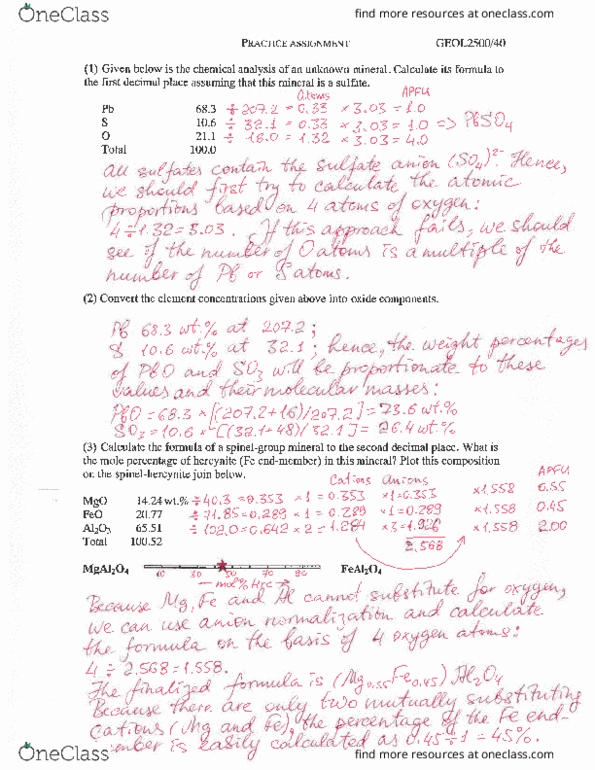 OneClass
find more resources at oneclass.com
PRACTICE ASSIGNMENT GEOL2500/40
(1) Given below is the chemical analysis of an unknown mineral. Calculate its formula to
the first decimal place assuming that this mineral is a sulfate.
atoms APFU
Pb 68.3 ÷ 207.2 = 0.33 × 3.03 = 1.0
S 10.6 ÷ 32.1 = 0.33 × 3.03 = 1.0 => PbSO4
O 21.1 ÷ 16.0 = 1.32 × 3.03 = 4.0
Total 100.0
All sulfates contain the sulfate anion (SO4)2-. Hence,
we should first try to calculate the atomic
proportions based on 4 atoms of oxygen:
4÷1.32=3.03. If this approach fails, we should
see if the number of O atoms is a multiple of the
number of Pb or S atoms.
(2) Convert the element concentrations given above into oxide components.
Pb 68.3 wt.% at 207.2;
S 10.6 wt.% at 32.1; hence, the weight percentages
of PbO and SO3 will be proportionate to these
values and their molecular masses:
PbO = 68.3 × [(207.2+16)/207.2] = 73.6 wt.%
SO3 = 10.6 × [(32.1+48)/32.1] = 26.4 wt.%
(3) Calculate the formula of a spinel-group mineral to the second decimal place. What is
the mole percentage of hercynite (Fe end-member) in this mineral? Plot this composition
on the spinel-hercynite join below.
Cations Anions APFU
MgO 14.24 wt.% ÷40.3=0.353 ×1=0.353 ×1=0.353 ×1.558 0.55
FeO 20.77 ÷71.85=0.289 ×1=0.289 ×1=0.289 ×1.558 0.45
Al2O3 65.51 ÷102.0=0.642 ×2=1.284 ×3=1.926 ×1.558 2.00
Total 100.52 2.568
MgAl2O4 10 30 50 70 80 FeAl2O4
— mol.% Hrc →
Because Mg, Fe and Al cannot substitute for oxygen,
we can use anion normalization and calculate
the formula on the basis of 4 oxygen atoms:
4 ÷ 2.568 = 1.558.
The finalized formula is (Mg0.55Fe0.45)Al2O4
Because there are only two mutually substituting
cations (Mg and Fe), the percentage of the Fe end-
member is easily calculated as 0.45÷1 = 45%.
OneClass
find more resources at oneclass.com